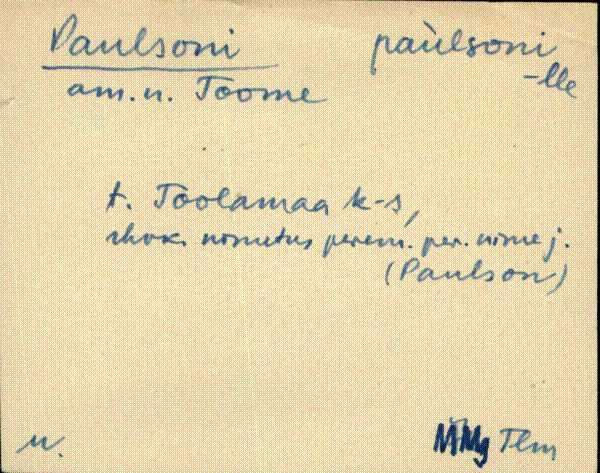 Paulsoni pau̇̀lsoni
-lle
am. n. Toome
t. Toolamaa k-s,
rhvk. nimetus perem. per. nime j.
(Paulson)
n.
MMg Tlm